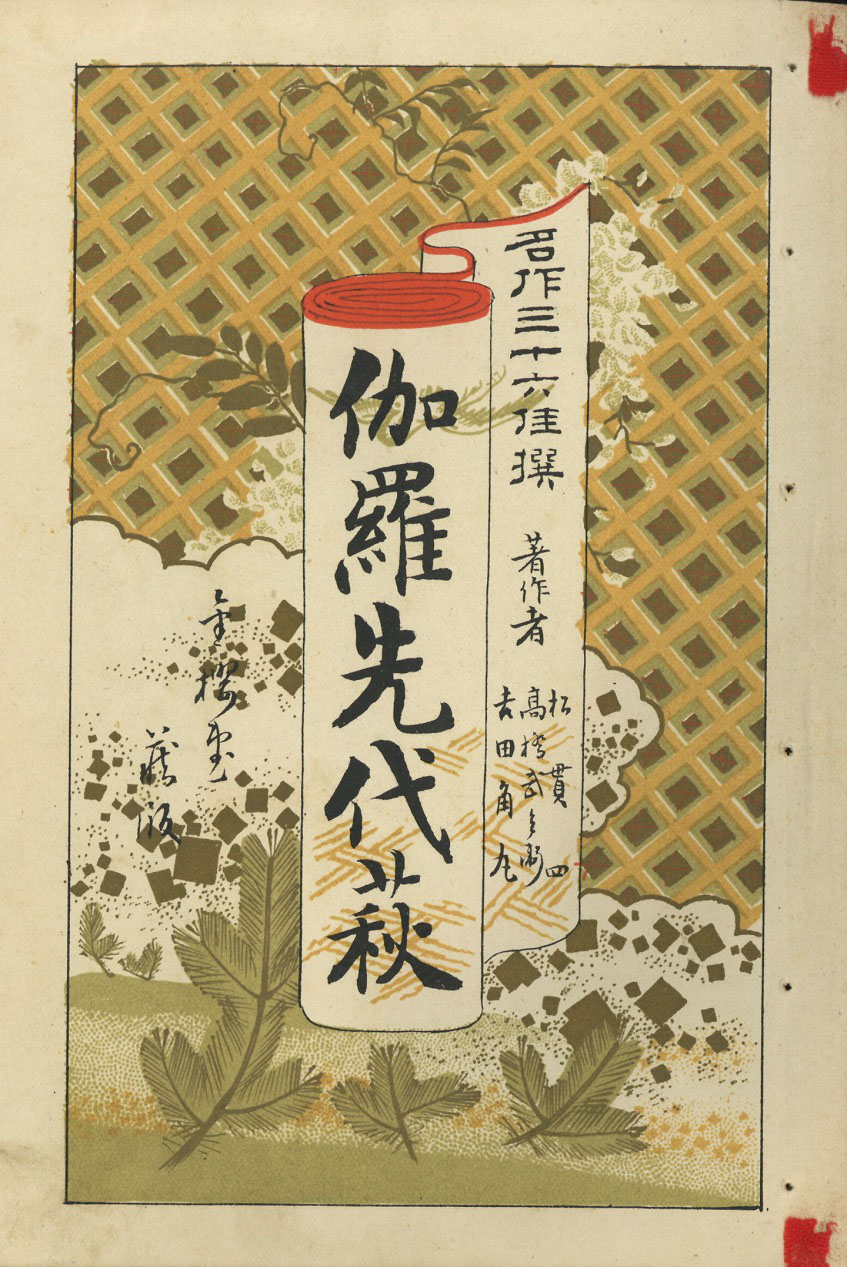 名作三十六佳撰
著作者
松貫四
高橋武兵衛
吉田角丸
伽羅先代萩
金桜堂
蔵版